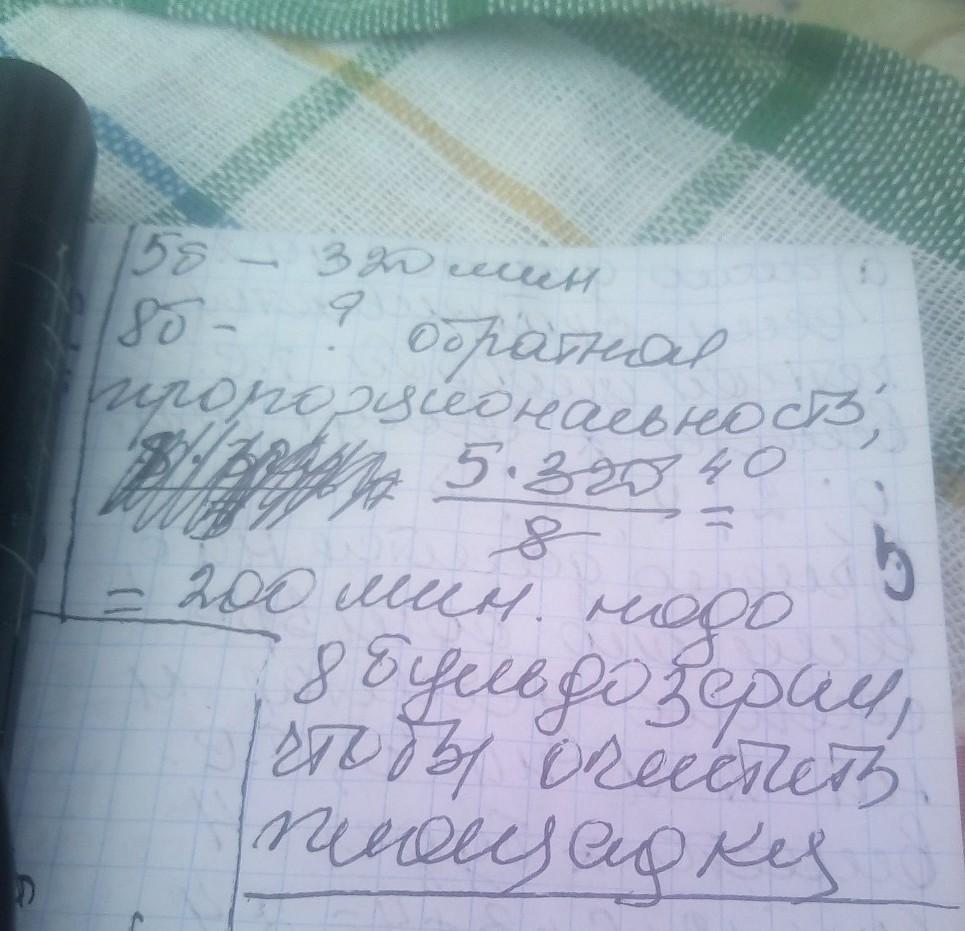 5б - 320 мин
8б - ? обратная
пропорциональность;
5·320 40
8 =
= 200 мин. надо
8 бульдозерам,
чтобы очистить
площадку
5